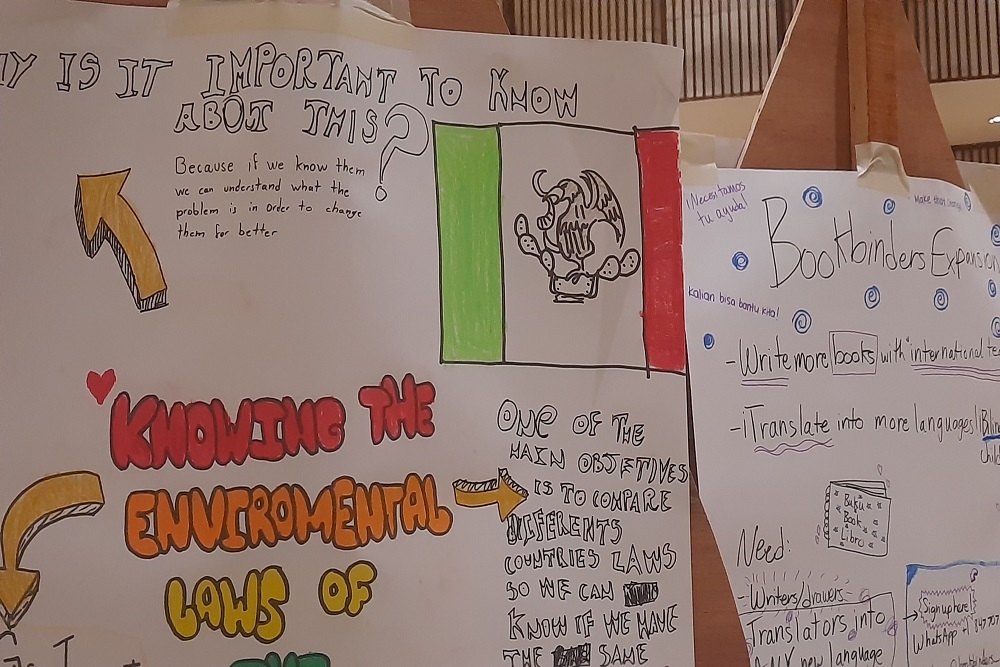 IS IT IMPORTANT TO KNOW
ABOUT THIS?
Because if we know them
we can understand what the
problem is in order to change
them for better
KNOWING THE
ENVIROMENTAL
LAWS OF
THE
ONE OF THE
MAIN OBJETIVES
IS TO COMPARE
DIFERENTS
COUNTRIES LAWS
SO WE CAN
KNOW IF WE HAVE
THE SAME
¡Necesitamos
tu ayuda!
Make that change
Bookbinders Expansion
Kalian bisa bantu kita!
-Write more books with international
-¡Translate into more languages!
Buku
Book
Libro
Need:
-Writers/drawers
Translators into
ANY new language
Sign up here!
WhatsApp